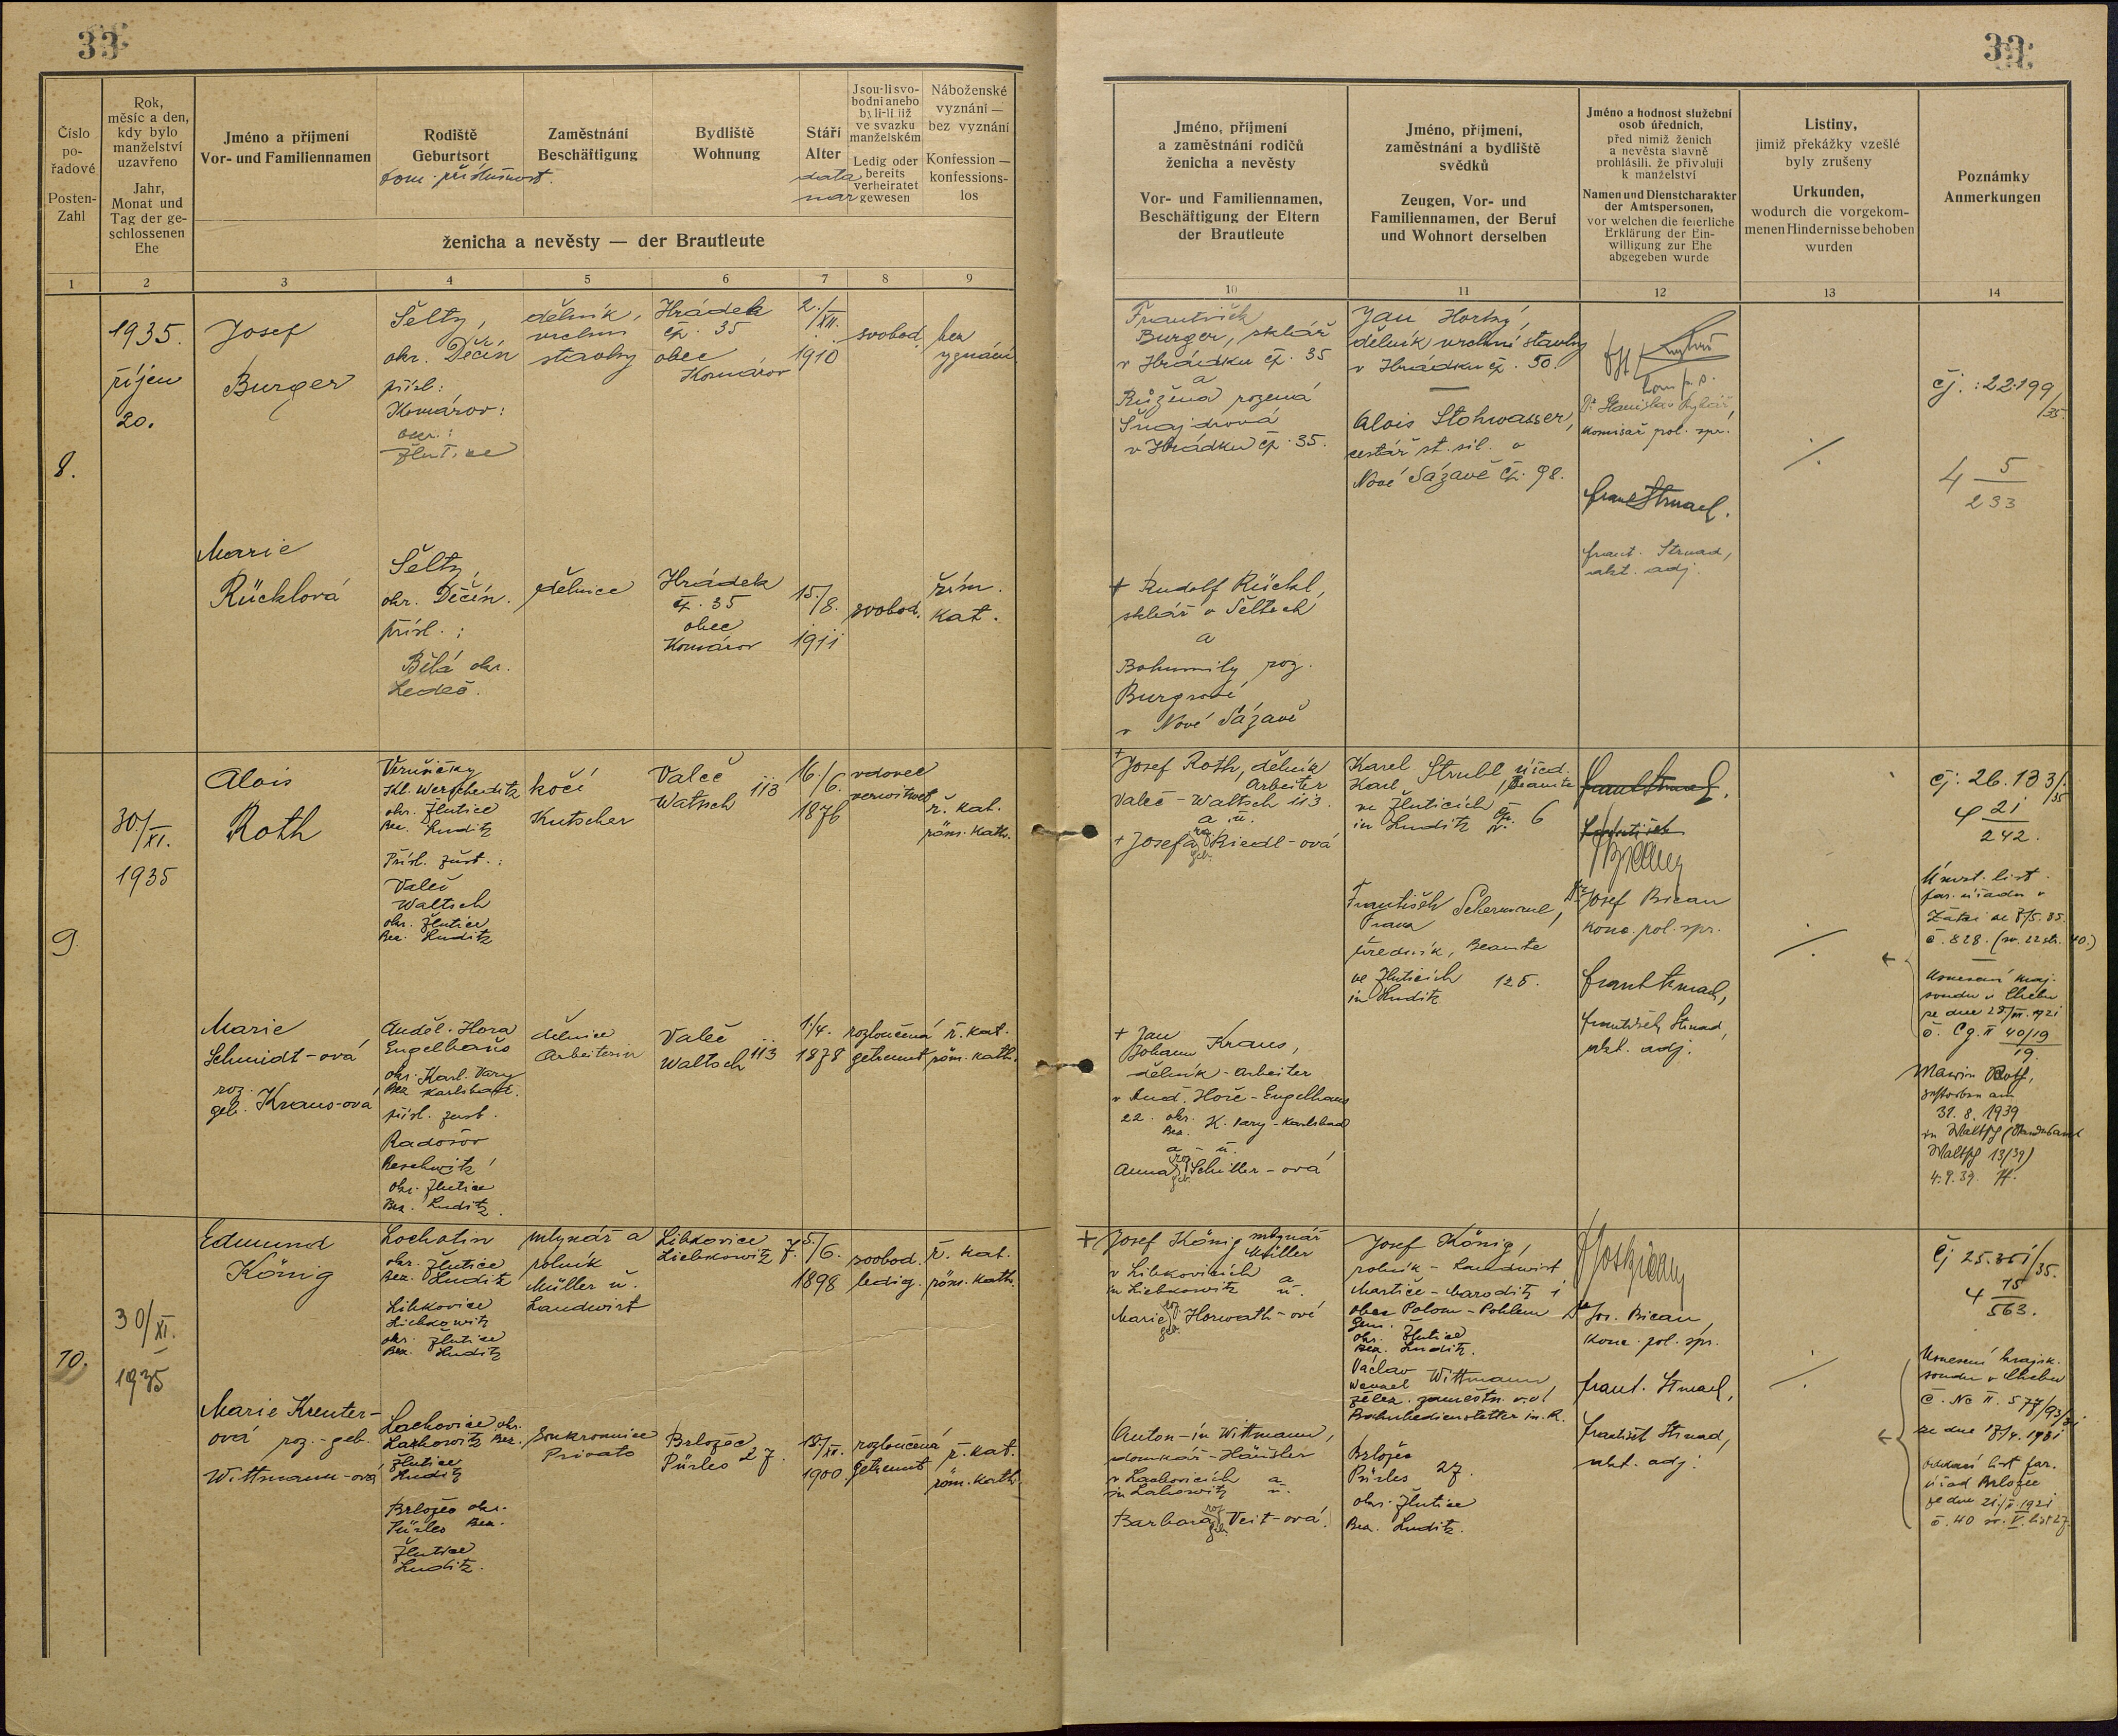 33
33
Číslo
po-
řadové
Posten-
Zahl
Rok,
měsíc a den,
kdy bylo
manželství
uzavřeno
Jahr,
Monat und
Tag der ge-
schlossenen
Ehe
Jméno a příjmení
Vor- und Familiennamen
Rodiště
Geburtsort
dom. příslušnost.
Zaměstnání
Beschäftigung
Bydliště
Wohnung
Stáří
Alter
data
nar
Jsou-li svo-
bodni anebo
byli-li již
ve svazku
manželském
Ledig oder
bereits
verheiratet
gewesen
Náboženské
vyznání —
bez vyznání
Konfession —
konfessions-
los
ženicha a nevěsty — der Brautleute
Jméno, příjmení
a zaměstnání rodičů
ženicha a nevěsty
Vor- und Familiennamen,
Beschäftigung der Eltern
der Brautleute
Jméno, příjmení,
zaměstnání a bydliště
svědků
Zeugen, Vor- und
Familiennamen, der Beruf
und Wohnort derselben
Jméno a hodnost služební
osob úředních,
před nimiž ženich
a nevěsta slavně
prohlásili, že přivolují
k manželství
Namen und Dienstcharakter
der Amtspersonen,
vor welchen die feierliche
Erklärung der Ein-
willigung zur Ehe
abgegeben wurde
Listiny,
jimiž překážky vzešlé
byly zrušeny
Urkunden,
wodurch die vorgekom-
menen Hindernisse behoben
wurden
Poznámky
Anmerkungen
1 2 3 4 5 6 7 8 9 10 11 12 13 14
8.
1935.
říjen
20.
Josef
Burger
Šelty,
okr. Děčín
přísl:
Komárov:
okr.:
Žlutice
dělník,
vrchní
stavby
Hrádek
čp. 35
obec
Komárov
2./
XII.
1910
svobod.
bez
vyznání
František
Burger, sklář
v Hrádku čp. 35
a
Růžena rozená
Šnajdrová
v Hrádku čp. 35.
Jan Horký,
dělník vrchní stavby
v Hrádku čp. 50.
Alois Stohwasser,
cestář st. sil. v
Nové Sázavě čp. 98.
Dr Stanislav
komisař pol. spr.
Frant Strnad.
frant. Strnad,
akt. adj.
čj.: 22.199
/35.
4 5
233
Marie
Rücklová
Šelty,
okr. Děčín.
přísl.:
Bělá okr.
Ledeč.
dělnice
Hrádek
čp. 35
obec
Komárov
15./
8.
1911
svobod.
řím.
kat.
+ Rudolf Rückl,
sklář v Šeltech
a
Bohumily roz.
Burgrové
v Nové Sázavě
9
30./
XI.
1935
Alois
Roth
Verušičky
Skl. Werscheditz
okr. Žlutice
Bez. Luditz
Přísl. zust.:
Valeč
Waltsch
okr. Žlutice
Bez. Luditz
kočí
Kutscher
Valeč
Waltsch 113
16./
6.
1876
vdovec
verwitwet
ř. kat.
röm. kath.
+ Josef Roth, dělník
Arbeiter
Valeč - Waltsch 113.
a u.
+ Josefa roz. geb. Riedl-ová
Karel Strubl, úřed.
Karl Beamte
ve Žluticích čp. 6
in Luditz N.
František Schermaul,
Franz
úředník, Beamte
ve Žluticích 125.
in Luditz
Dr Josef Bican
konc. pol. spr.
frant Strnad,
František Strnad,
akt. adj.
čj: 26.133/
35
4 21
242.
Úmrt. list
far. úřadu v
č. 828. (sv. 22 str. 40.)
Usnesení kraj.
soudu v Chebu
č. Cg. II 40/19
19.
Marie
Schmidt-ová
roz.
geb. Kraus-ová
Anděl. Hora
Engelhaus
okr. Karl. Vary
Bez Karlsbad.
přísl. zust.
Radošov
Reschwitz
okr. Žlutice
Bez. Luditz.
dělnice
Arbeiterin
Valeč
Waltsch 113
1./4.
1878
rozloučená
getrennt
ř. kat.
röm. kath.
+ Jan
Johann Kraus,
dělník - Arbeiter
v And. Hoře - Engelhaus
22. okr. K. Vary - Karlsbad
Bez.
a - u.
Anna roz. geb. Schiller-ová
Roth,
gestorben am
31. 8. 1939
in Waltsch (Standesamt
Waltsch 13/39)
4.9.39.
10.
30/
XI.
1935
Edmund
König
Lochotin
okr. Žlutice
Bez. Luditz
Libkovice
Liebkowitz
okr. Žlutice
Bez. Luditz
mlynář a
rolník
Müller u.
Landwirt
Libkovice
Liebkowitz 7.
5./
6.
1898
svobod.
ledig.
ř. kat.
röm. kath.
+ Josef König mlynář
Müller
v Libkovicích a
in Liebkowitz u.
Marie roz. geb. Horwath-ové
Josef König,
rolník - Landwirt
Martice - Maroditz 1
obec Polom - Pohlem
Gem.
okr. Žlutice
Bez. Luditz.
Václav Wittmann,
Wenzel
želez. zaměstn. v.v.
Bahnbediensteter in R.
Brložec
Pürles 27.
okr. Žlutice
Bez. Luditz.
Dr Jos. Bican,
konc. pol. spr.
frant. Strnad,
František Strnad,
akt. adj.
čj 25.351/35.
4 15
563.
Usnesení krajsk.
soudu v Chebu
ze dne 17/4. 1931
oddací list far.
úřad Brložec
ze dne 21./II. 1921
č. 40 sv. V. list 27.
Marie Kreuter-
ová roz.-geb.
Wittmann-ová
Lachovice okr.
Lachowitz Bez.
Žlutice
Luditz
Brložec okr.
Pürles Bez.
Žlutice
Luditz.
soukromnice
Private
Brložec
Pürles 27.
15./
XI.
1900
rozloučená
getrennt
ř. kat.
röm. kath.
Anton-ín Wittmann,
domkář - Häusler
v Lachovicích a
in Lachowitz u.
Barbara roz. geb. Veit-ová.